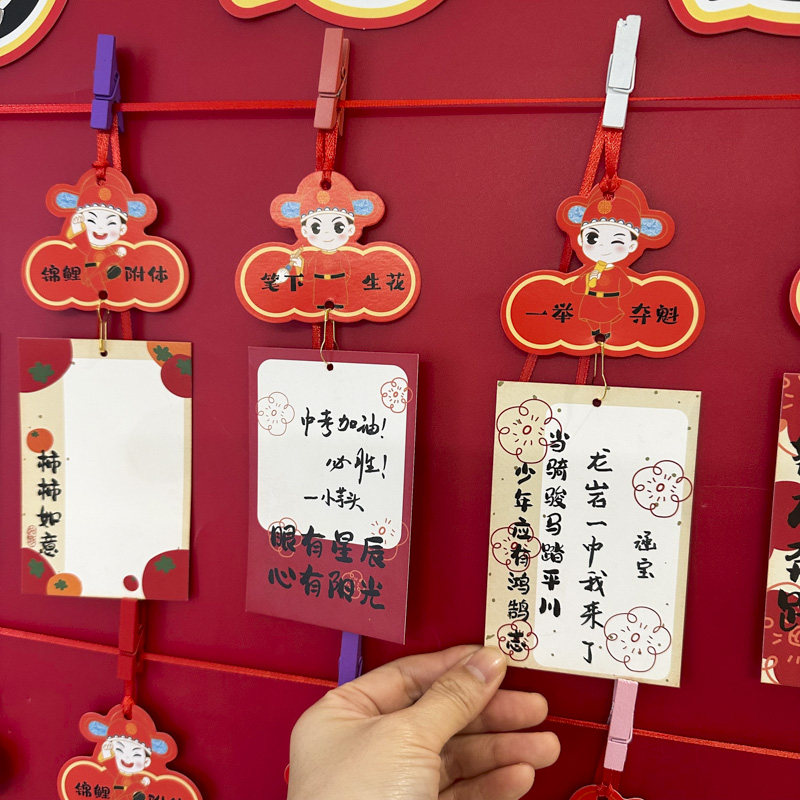 锦鲤 附体
柿柿如意
笔下 生花
中考加油!
必胜!
一小芋头
眼有星辰
心有阳光
一举 夺魁
当骑骏马踏平川
少年应有鸿鹄志
龙岩一中我来了
涵宝
锦鲤 附体